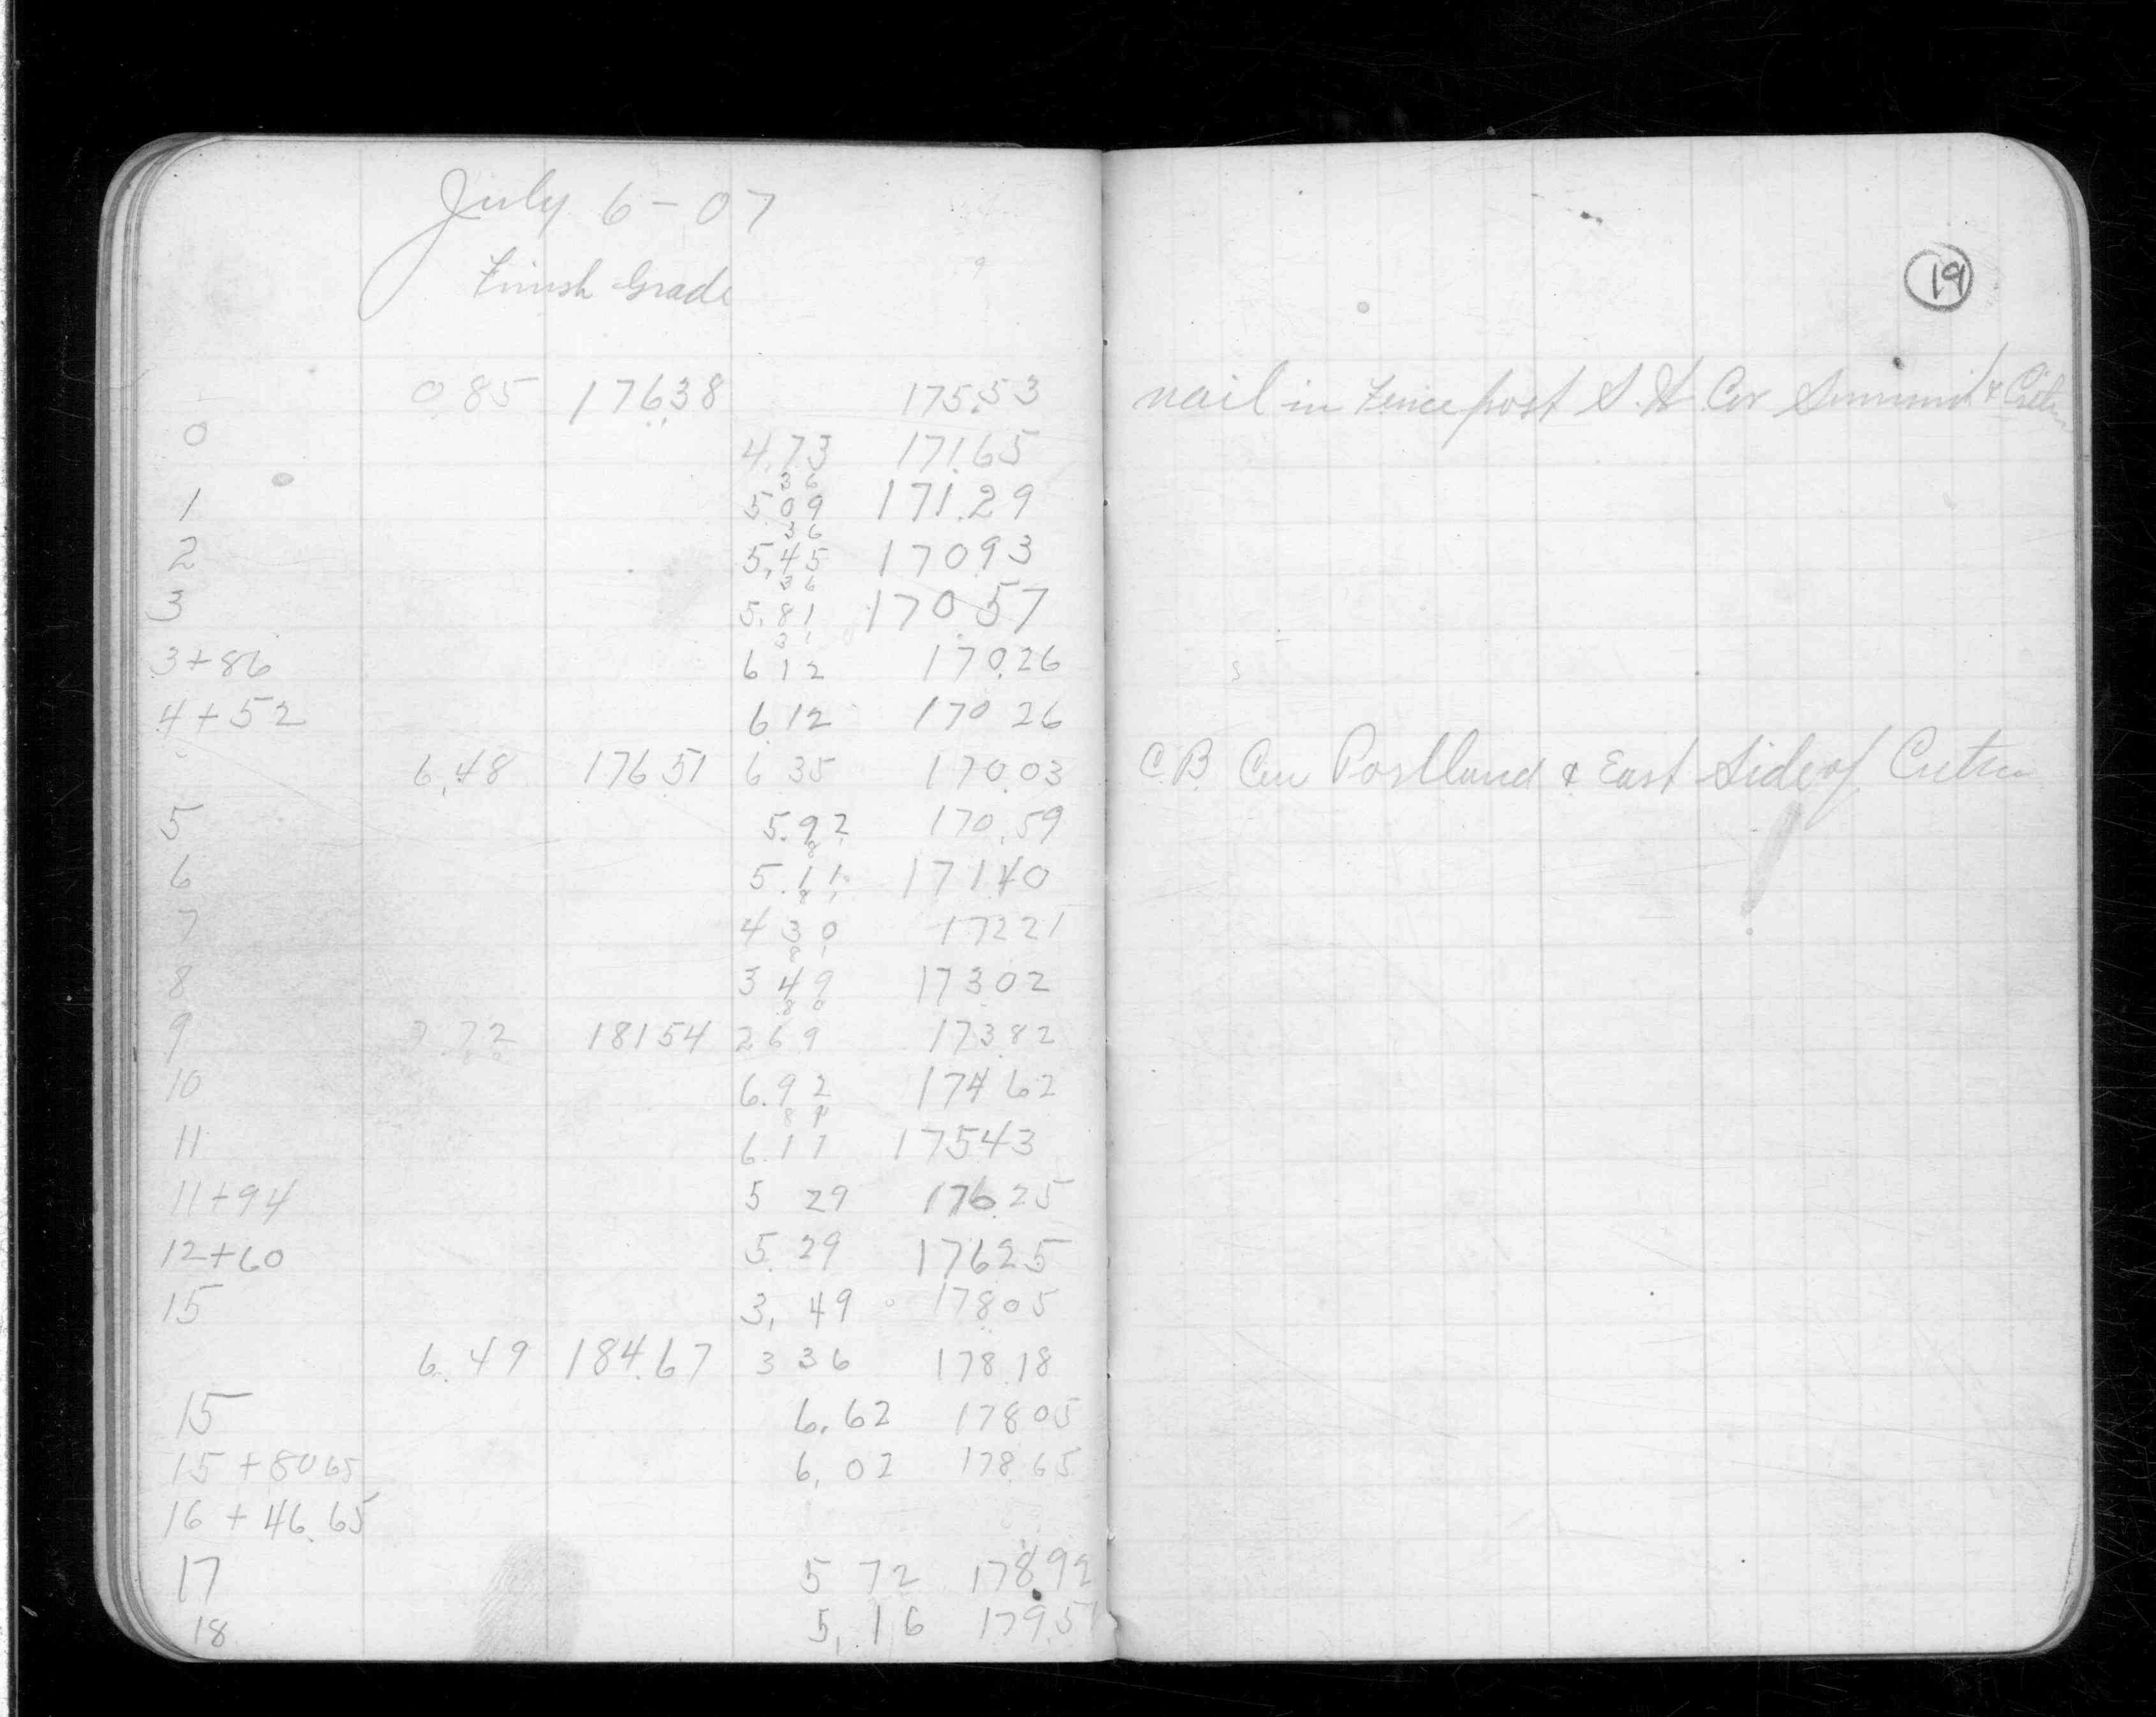 July 6-07
Finish Grade
19
0.85 176.38 175.53 nail in Fence post S. W. Cor Summit & Cretin
0 4.73 171.65
36
1 5.09 171.29
36
2 5,45 170.93
36
3 5.81 170.57
31
3+86 6 12 170.26
4+52 6.12 170 26
6.48 176.51 6 35 170.03 C.B. Cor Portland & East Side of Cretin
5 5.92 170.59
81
6 5.11 171.40
81
7 4 30 172 21
81
8 3 49 173.02
80
9 7.72 181 54 2 69 173.82
10 6.92 174 62
81
11 6.11 175 43
11+94 5 29 176.25
12+60 5.29 176 25
15 3, 49 178 05
6.49 184.67 3 36 178.18
15 6.62 178 05
15+80 65 6, 02 178.65
16 + 46.65
17 5 72 178.92
18 5, 16 179.51